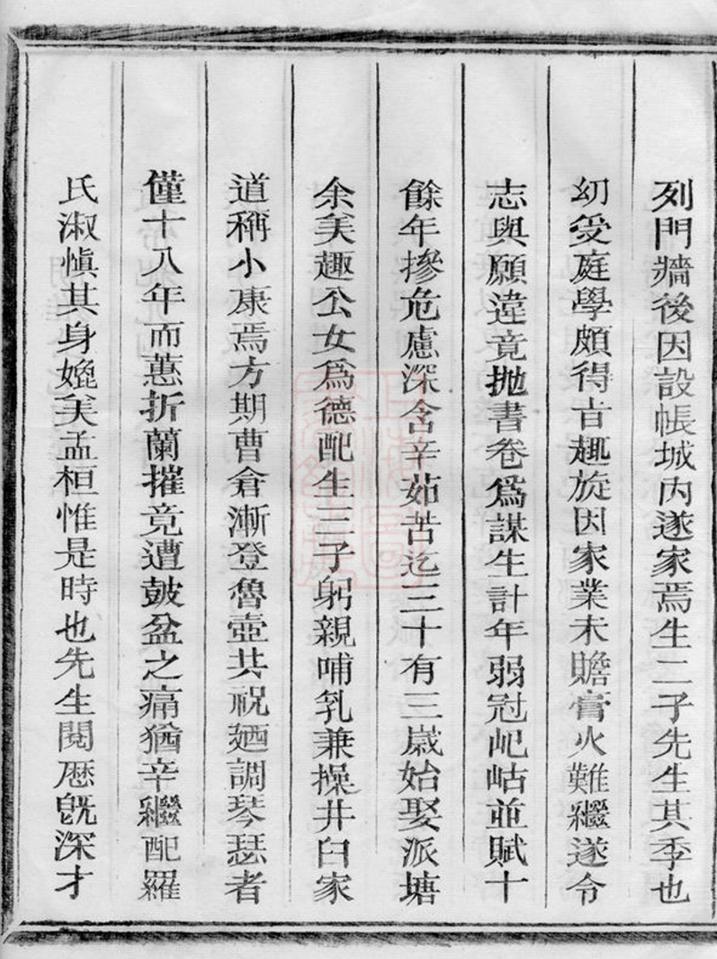 列門牆後因設帳城內遂家焉生二子先生其季也
幼受庭學頗得古趣旋因家業未贍膏火難繼遂令
志與願違竟拋書卷爲謀生計年弱冠屺岵並賦十
餘年摻危慮深含辛茹苦迄三十有三歲始娶派塘
余美趣公女爲德配生三子躬親哺乳兼操井臼家
道稱小康焉方期曹倉漸登魯壺共祝廼調琴瑟者
僅十八年而蕙折蘭摧竟遭鼓盆之痛猶辛繼配羅
氏淑愼其身媲美孟桓惟是時也先生閱歷旣深才